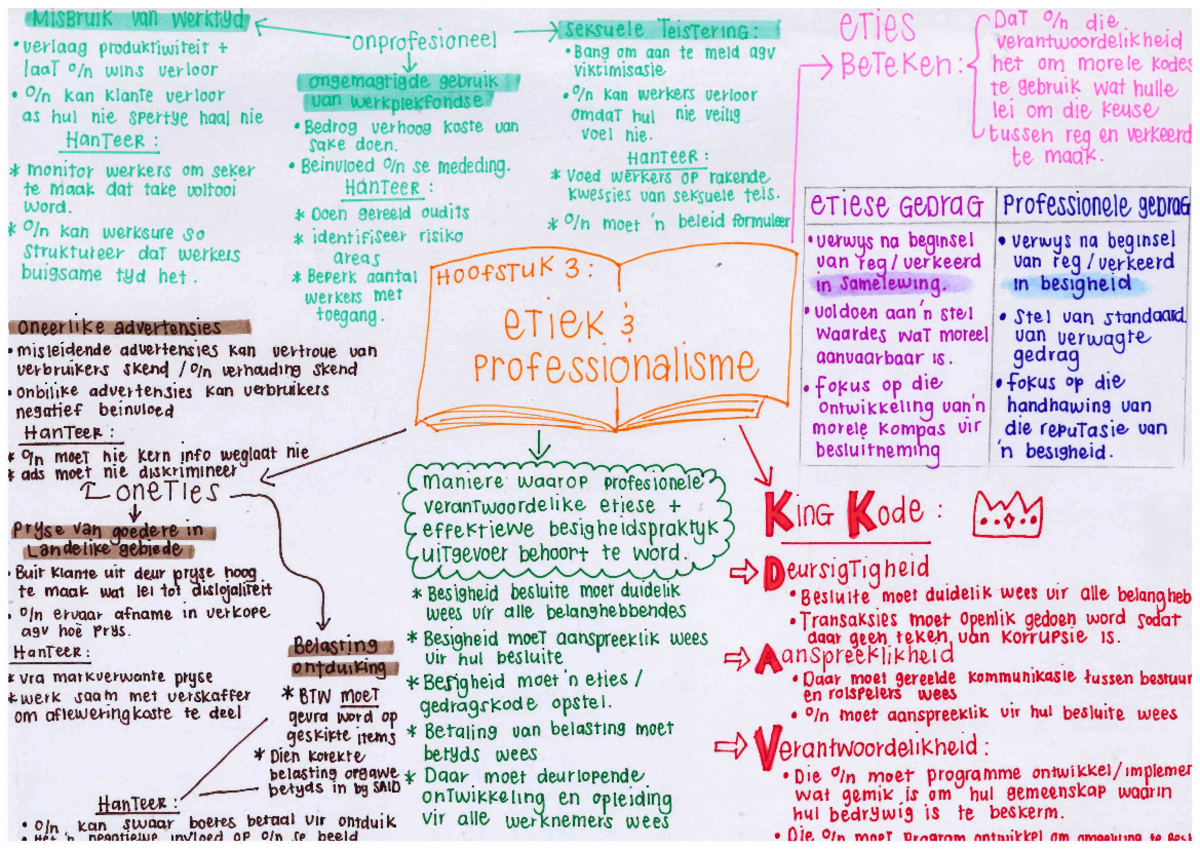 Misbruik van werktyd
• verlaag produktiwiteit +
laat o/n wins verloor
• o/n kan klante verloor
as hul nie spertye haal nie
Hanteer:
* monitor werkers om seker
te maak dat take voltooi
word.
* o/n kan werksure so
struktureer dat werkers
buigsame tyd het.
onprofesioneel
ongemagtigde gebruik
van werkplekfondse
• Bedrog verhoog koste van
sake doen.
• Beinvloed o/n se mededing.
Hanteer:
* Doen gereeld oudits
* identifiseer risiko
areas
* Beperk aantal
werkers met
toegang.
seksuele Teistering:
• Bang om aan te meld agv
viktimisasie.
• o/n kan werkers verloor
omdat hul nie veilig
voel nie.
Hanteer:
* Voed werkers op rakende
kwessies van seksuele teis.
* o/n moet 'n beleid formuleer
eties
Beteken:
Dat o/n die
verantwoordelikheid
het om morele kodes
te gebruik wat hulle
lei om die keuse
tussen reg en verkeerd
te maak.
etiese gedrag
• verwys na beginsel
van reg/verkeerd
in samelewing.
• voldoen aan 'n stel
waardes wat moreel
aanvaarbaar is.
• fokus op die
ontwikkeling van 'n
morele kompas vir
besluitneming
Professionele gedrag
• verwys na beginsel
van reg/verkeerd
in besigheid
• stel van standaard
van verwagte
gedrag
• fokus op die
handhawing van
die reputasie van
'n besigheid.
Hoofstuk 3:
etiek &
Professionalisme
oneerlike advertensies
• misleidende advertensies kan vertroue van
verbruikers skend / o/n verhouding skend
• onbilike advertensies kan verbruikers
negatief beinvloed
Hanteer:
* o/n moet nie kern info weglaat nie
* ads moet nie diskrimineer
oneties
Pryse van goedere in
Landelike gebiede
• Buit klante uit deur pryse hoog
te maak wat lei tot dislojaliteit
• o/n ervaar afname in verkope
agv hoë prys.
Hanteer:
* vra markverwante pryse
* werk saam met verskaffer
om afleweringkoste te deel
Belasting
ontduiking
* BTW moet
gevra word op
geskikte items
* Dien korekte
belasting opgawe
betyds in by SAID
Hanteer:
• o/n kan swaar boetes betaal vir ontduik
• Het 'n negatiewe invloed op o/n se beeld
maniere waarop profesionele
verantwoordelike etiese +
effektiewe besigheidspraktyk
uitgevoer behoort te word.
* Besigheid besluite moet duidelik
wees vir alle belanghebbendes
* Besigheid moet aanspreeklik wees
vir hul besluite
* Besigheid moet 'n eties/
gedragskode opstel.
* Betaling van belasting moet
betyds wees
* Daar moet deurlopende
ontwikkeling en opleiding
vir alle werknemers wees
King Kode:
Deursigtigheid
• Besluite moet duidelik wees vir alle belangheb
• Transaksies moet openlik gedoen word sodat
daar geen teken van korrupsie is.
Aanspreeklikheid
• Daar moet gereelde kommunikasie tussen bestuur
en rolspelers wees
• o/n moet aanspreeklik vir hul besluite wees
Verantwoordelikheid:
• Die o/n moet programme ontwikkel/implemen
wat gemik is om hul gemeenskap waarin
hul bedrywig is te beskerm.
• Die o/n moet program ontwikkel om omgewing te